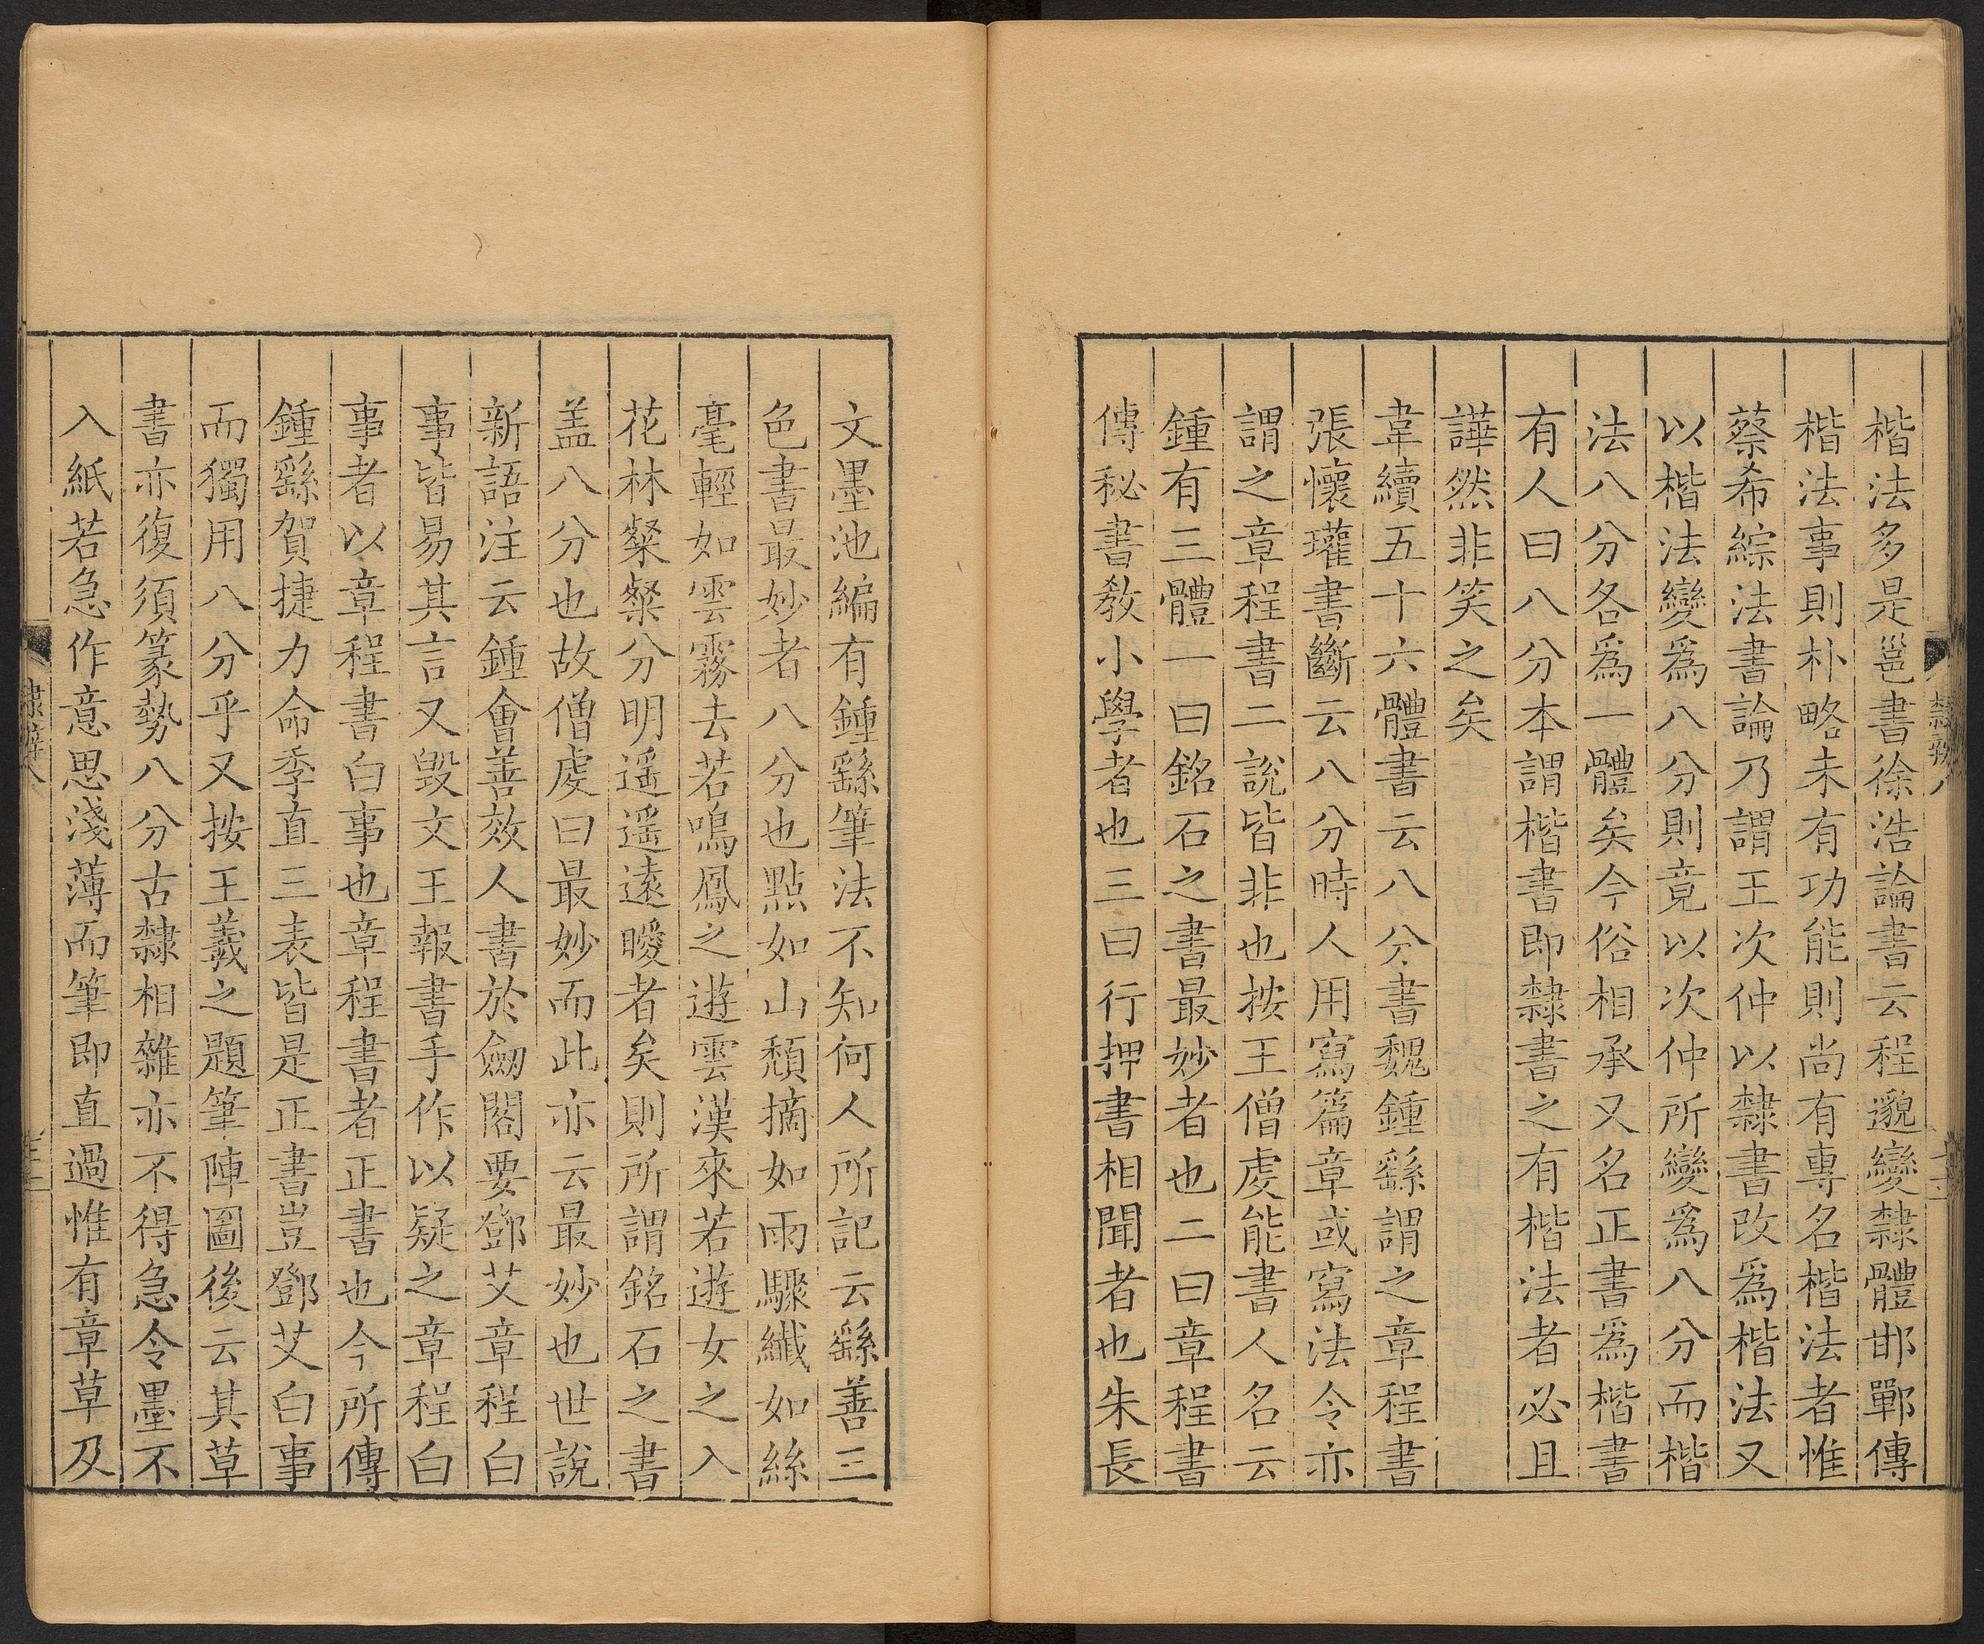 楷法多是邕書徐浩論書云程邈變隸體邯鄲傳
楷法事則朴略未有功能則尚有專名楷法者惟
蔡希綜法書論乃謂王次仲以隸書改爲楷法又
以楷法變爲八分則竟以次仲所變爲八分而楷
法八分各爲一體矣今俗相承又名正書爲楷書
有人曰八分本謂楷書即隸書之有楷法者必且
譁然非笑之矣
韋續五十六體書云八分書魏鍾繇謂之章程書
張懷瓘書斷云八分時人用寫篇章或寫法令亦
謂之章程書二說皆非也按王僧虔能書人名云
鍾有三體一曰銘石之書最妙者也二曰章程書
傳秘書教小學者也三曰行押書相聞者也朱長
文墨池編有鍾繇筆法不知何人所記云繇善三
色書最妙者八分也點如山頹摘如雨驟纖如絲
毫輕如雲霧去若鳴鳳之遊雲漢來若遊女之入
花林粲粲分明遥遥遠曖者矣則所謂銘石之書
盖八分也故僧虔曰最妙而此亦云最妙也世說
新語注云鍾會善效人書於劒閣要鄧艾章程白
事皆易其言又毀文王報書手作以疑之章程白
事者以章程書白事也章程書者正書也今所傳
鍾繇賀捷力命季直三表皆是正書豈鄧艾白事
而獨用八分乎又按王羲之題筆陣圖後云其草
書亦復須篆勢八分古隸相雜亦不得急令墨不
入紙若急作意思淺薄而筆即直過惟有章草及